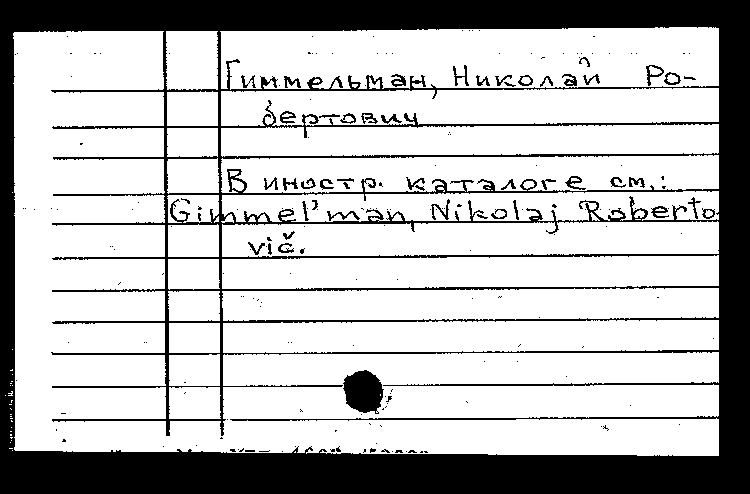 Гиммельман, Николай Ро-
бертович
В иностр. каталоге см.:
Gimmel'man, Nikolaj Roberto-
vič.